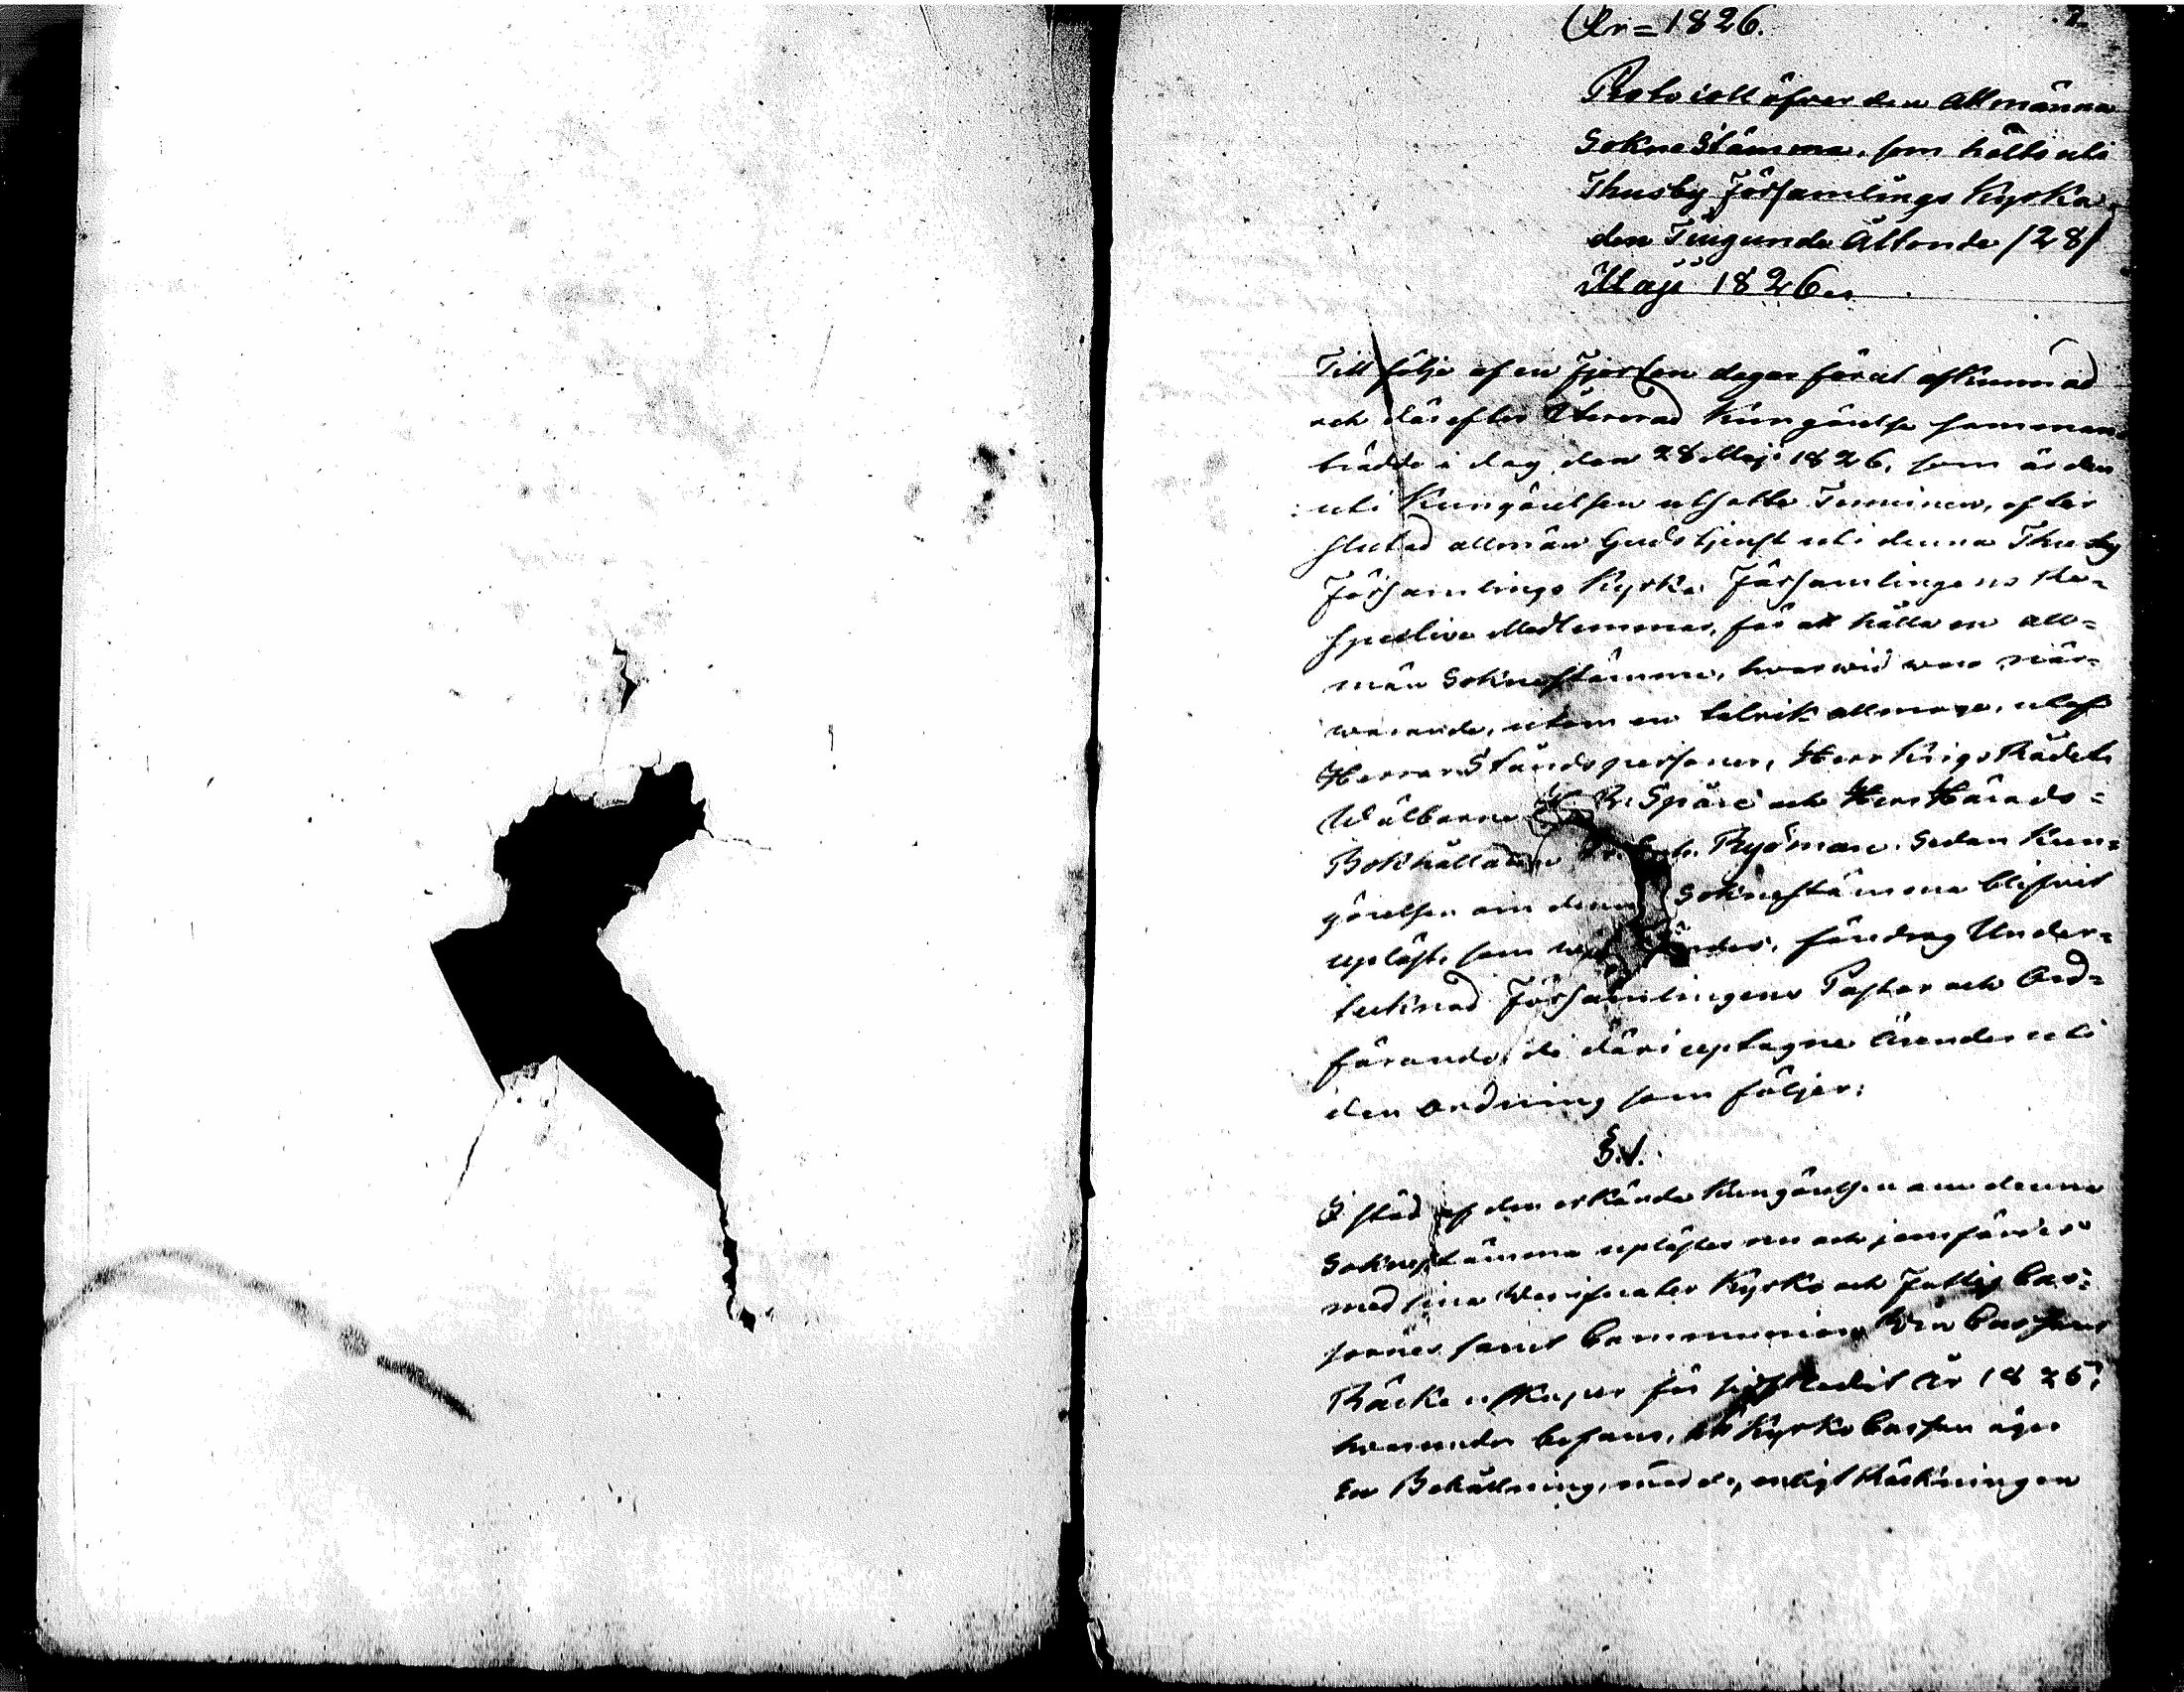 År = 1826.
2.
Protocoll öfver den Allmänna
SokneStämma, som hölts uti
Thusby Församlings Kyrka,
den Tjugunde Åttonde /28/
Maji 1826.
Till följe af en Fjorton dagar förut afkunnad
och därefter Kungörelse samman-
trädde i dag den 28 Maji 1826, som är den
uti Kungörelsen utsatte Terminen, efter
slutad allmän Gudstjenst uti denna Thusby
Församlings Kyrka Församlingens Re-
spective Medlemmar, för att hålla en all-
män Soknestämma, hvarvid voro när-
warande, utom en talrik allmoge, utaf
Herrar Ståndspersoner, Herr Krigs Rådet
Wälborne R. Spåre och Herr Härads-
Bokhållaren Rydman. Sedan Kun-
görelsen om denna Soknestämma blifvit
upläst, som fördrog Under-
tecknad Församlingens Pastor och Ord-
förande, de däri uptagne Ärender uti
den Ordning som följer:
§.1.
I stöd af den Kungörelsen om denna
Soknestämma uplästes nu och jemfördes
med sina Verificater Kyrko och Fattig Cas-
sornes samt Communion Vin Cassans
Räckenskaper för sistledit År 1825,
hvarunder befans, att Kyrko Cassan äger
En Behållning, med de, enligt Räkningen